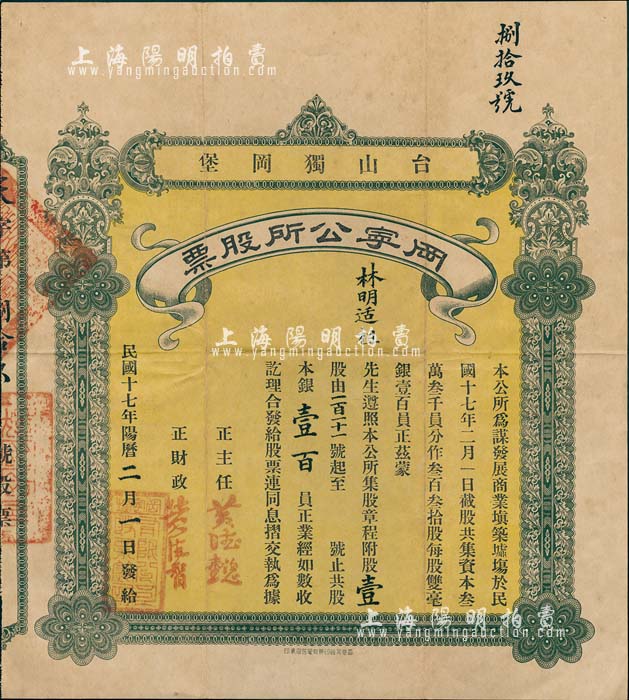 捌拾玖號
上海陽明拍賣
www.yangmingauction.com
台山獨岡堡
岡寧公所股票
林明适
本公所為謀發展商業填築墟塲於民
國十七年二月一日截股共集資本叁
萬叁千員分作叁百叁拾股每股雙毫
銀壹百員正茲蒙
先生遵照本公所集股章程附股壹
股由一百二十一號起至 號止共股
本銀壹百員正業經如數收
訖理合發給股票連同息摺交執為據
正主任
正財政
民國十七年陽曆二月一日發給
上海陽明拍賣
www.yangmingauction.com
上海陽明拍賣
www.yangmingauction.com
號股票